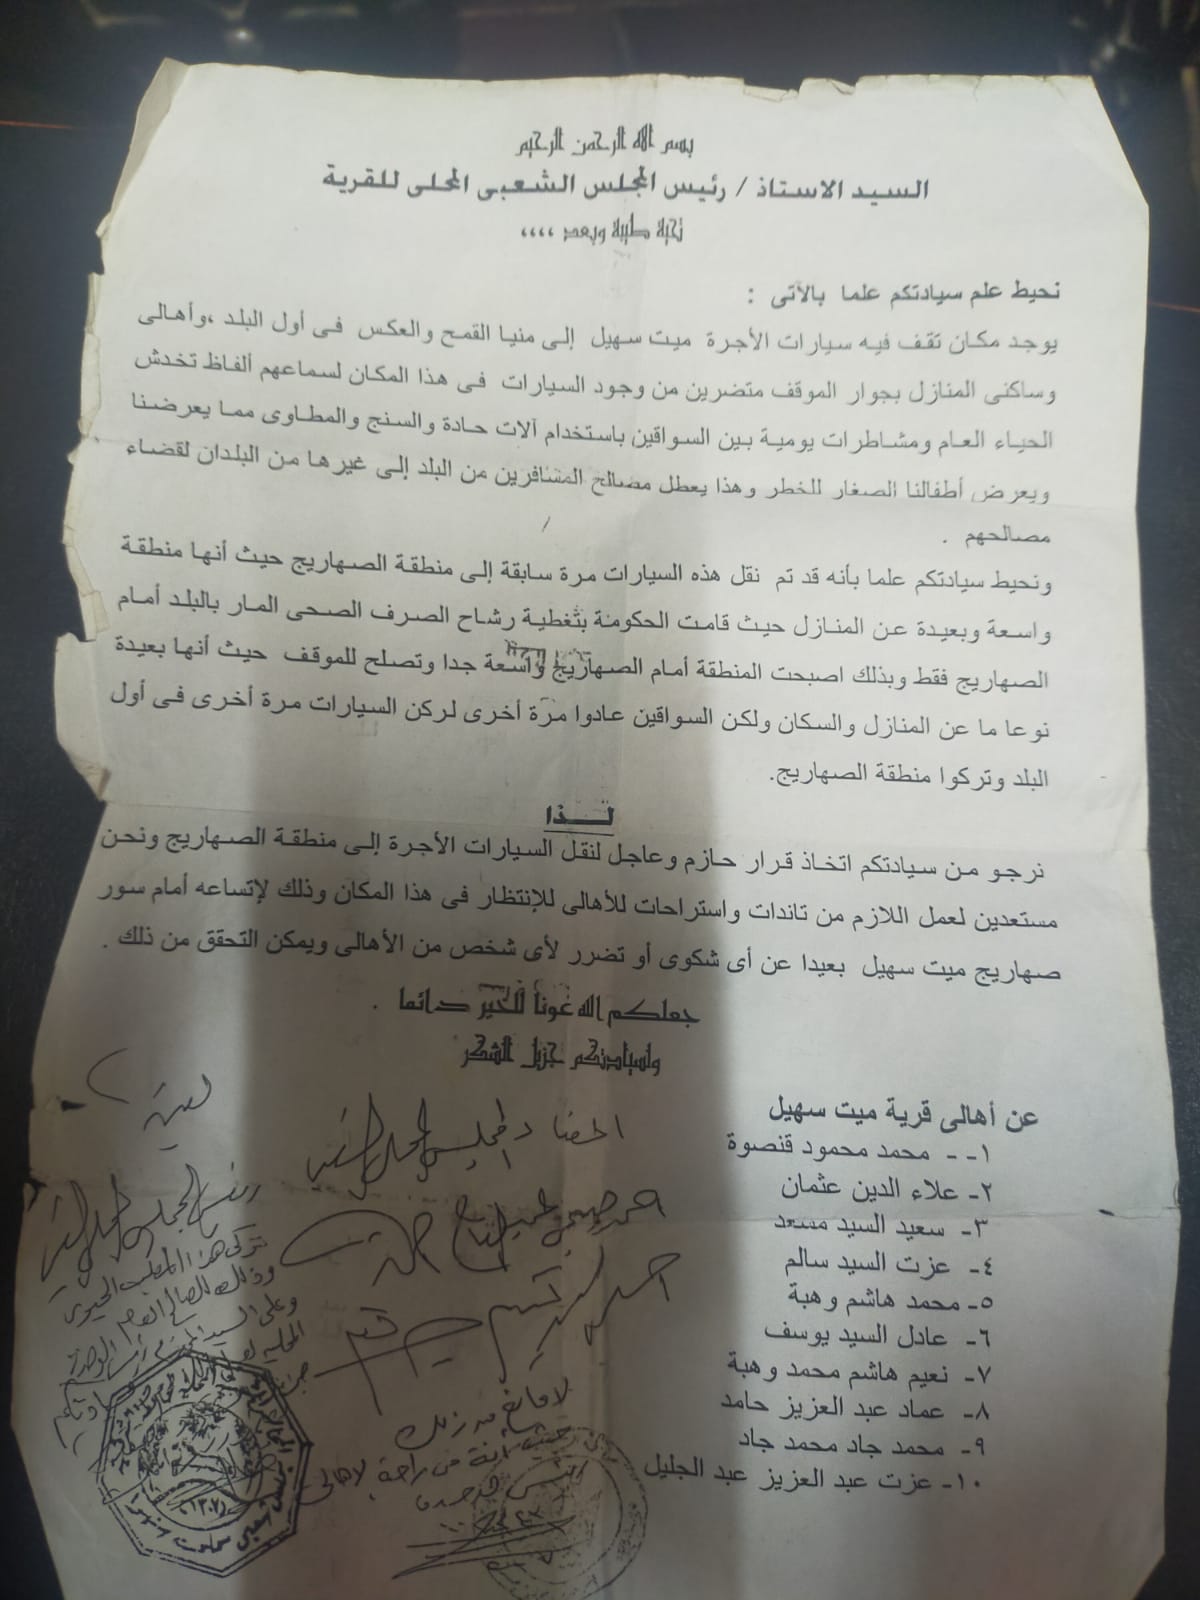 بسم الله الرحمن الرحيم
السيد الاستاذ / رئيس المجلس الشعبى المحلى للقرية
تحية طيبة وبعد ،،،،
نحيط علم سيادتكم علما بالآتى :
يوجد مكان تقف فيه سيارات الأجرة ميت سهيل إلى منيا القمح والعكس فى أول البلد ،وأهالى
وساكنى المنازل بجوار الموقف متضررين من وجود السيارات فى هذا المكان لسماعهم ألفاظ تخدش
الحياء العام ومشاطرات يومية بين السواقين باستخدام آلات حادة والسنج والمطاوى مما يعرضنا
ويعرض أطفالنا الصغار للخطر وهذا يعطل مصالح المسافرين من البلد إلى غيرها من البلدان لقضاء
مصالحهم .
ونحيط سيادتكم علما بأنه قد تم نقل هذه السيارات مرة سابقة إلى منطقة الصهاريج حيث أنها منطقة
واسعة وبعيدة عن المنازل حيث قامت الحكومة بتغطية رشاح الصرف الصحى المار بالبلد أمام
الصهاريج فقط وبذلك اصبحت المنطقة أمام الصهاريج واسعة جدا وتصلح للموقف حيث أنها بعيدة
نوعا ما عن المنازل والسكان ولكن السواقين عادوا مرة أخرى لركن السيارات مرة أخرى فى أول
البلد وتركوا منطقة الصهاريج.
لــذا
نرجو من سيادتكم اتخاذ قرار حازم وعاجل لنقل السيارات الأجرة إلى منطقة الصهاريج ونحن
مستعدين لعمل اللازم من تاندات واستراحات للأهالى للإنتظار فى هذا المكان وذلك لإتساعه أمام سور
صهاريج ميت سهيل بعيدا عن أى شكوى أو تضرر لأى شخص من الأهالى ويمكن التحقق من ذلك .
جعلكم الله عونا للخير دائما .
ولسيادتكم جزيل الشكر
عن أهالى قرية ميت سهيل
١- - محمد محمود قنصوة
٢- علاء الدين عثمان
٣- سعيد السيد مسعد
٤- عزت السيد سالم
٥- محمد هاشم وهبة
٦- عادل السيد يوسف
٧- نعيم هاشم محمد وهبة
٨- عماد عبد العزيز حامد
٩- محمد جاد محمد جاد
١٠- عزت عبد العزيز عبد الجليل
رئيس المجلس المحلى
لا مانع من ذلك